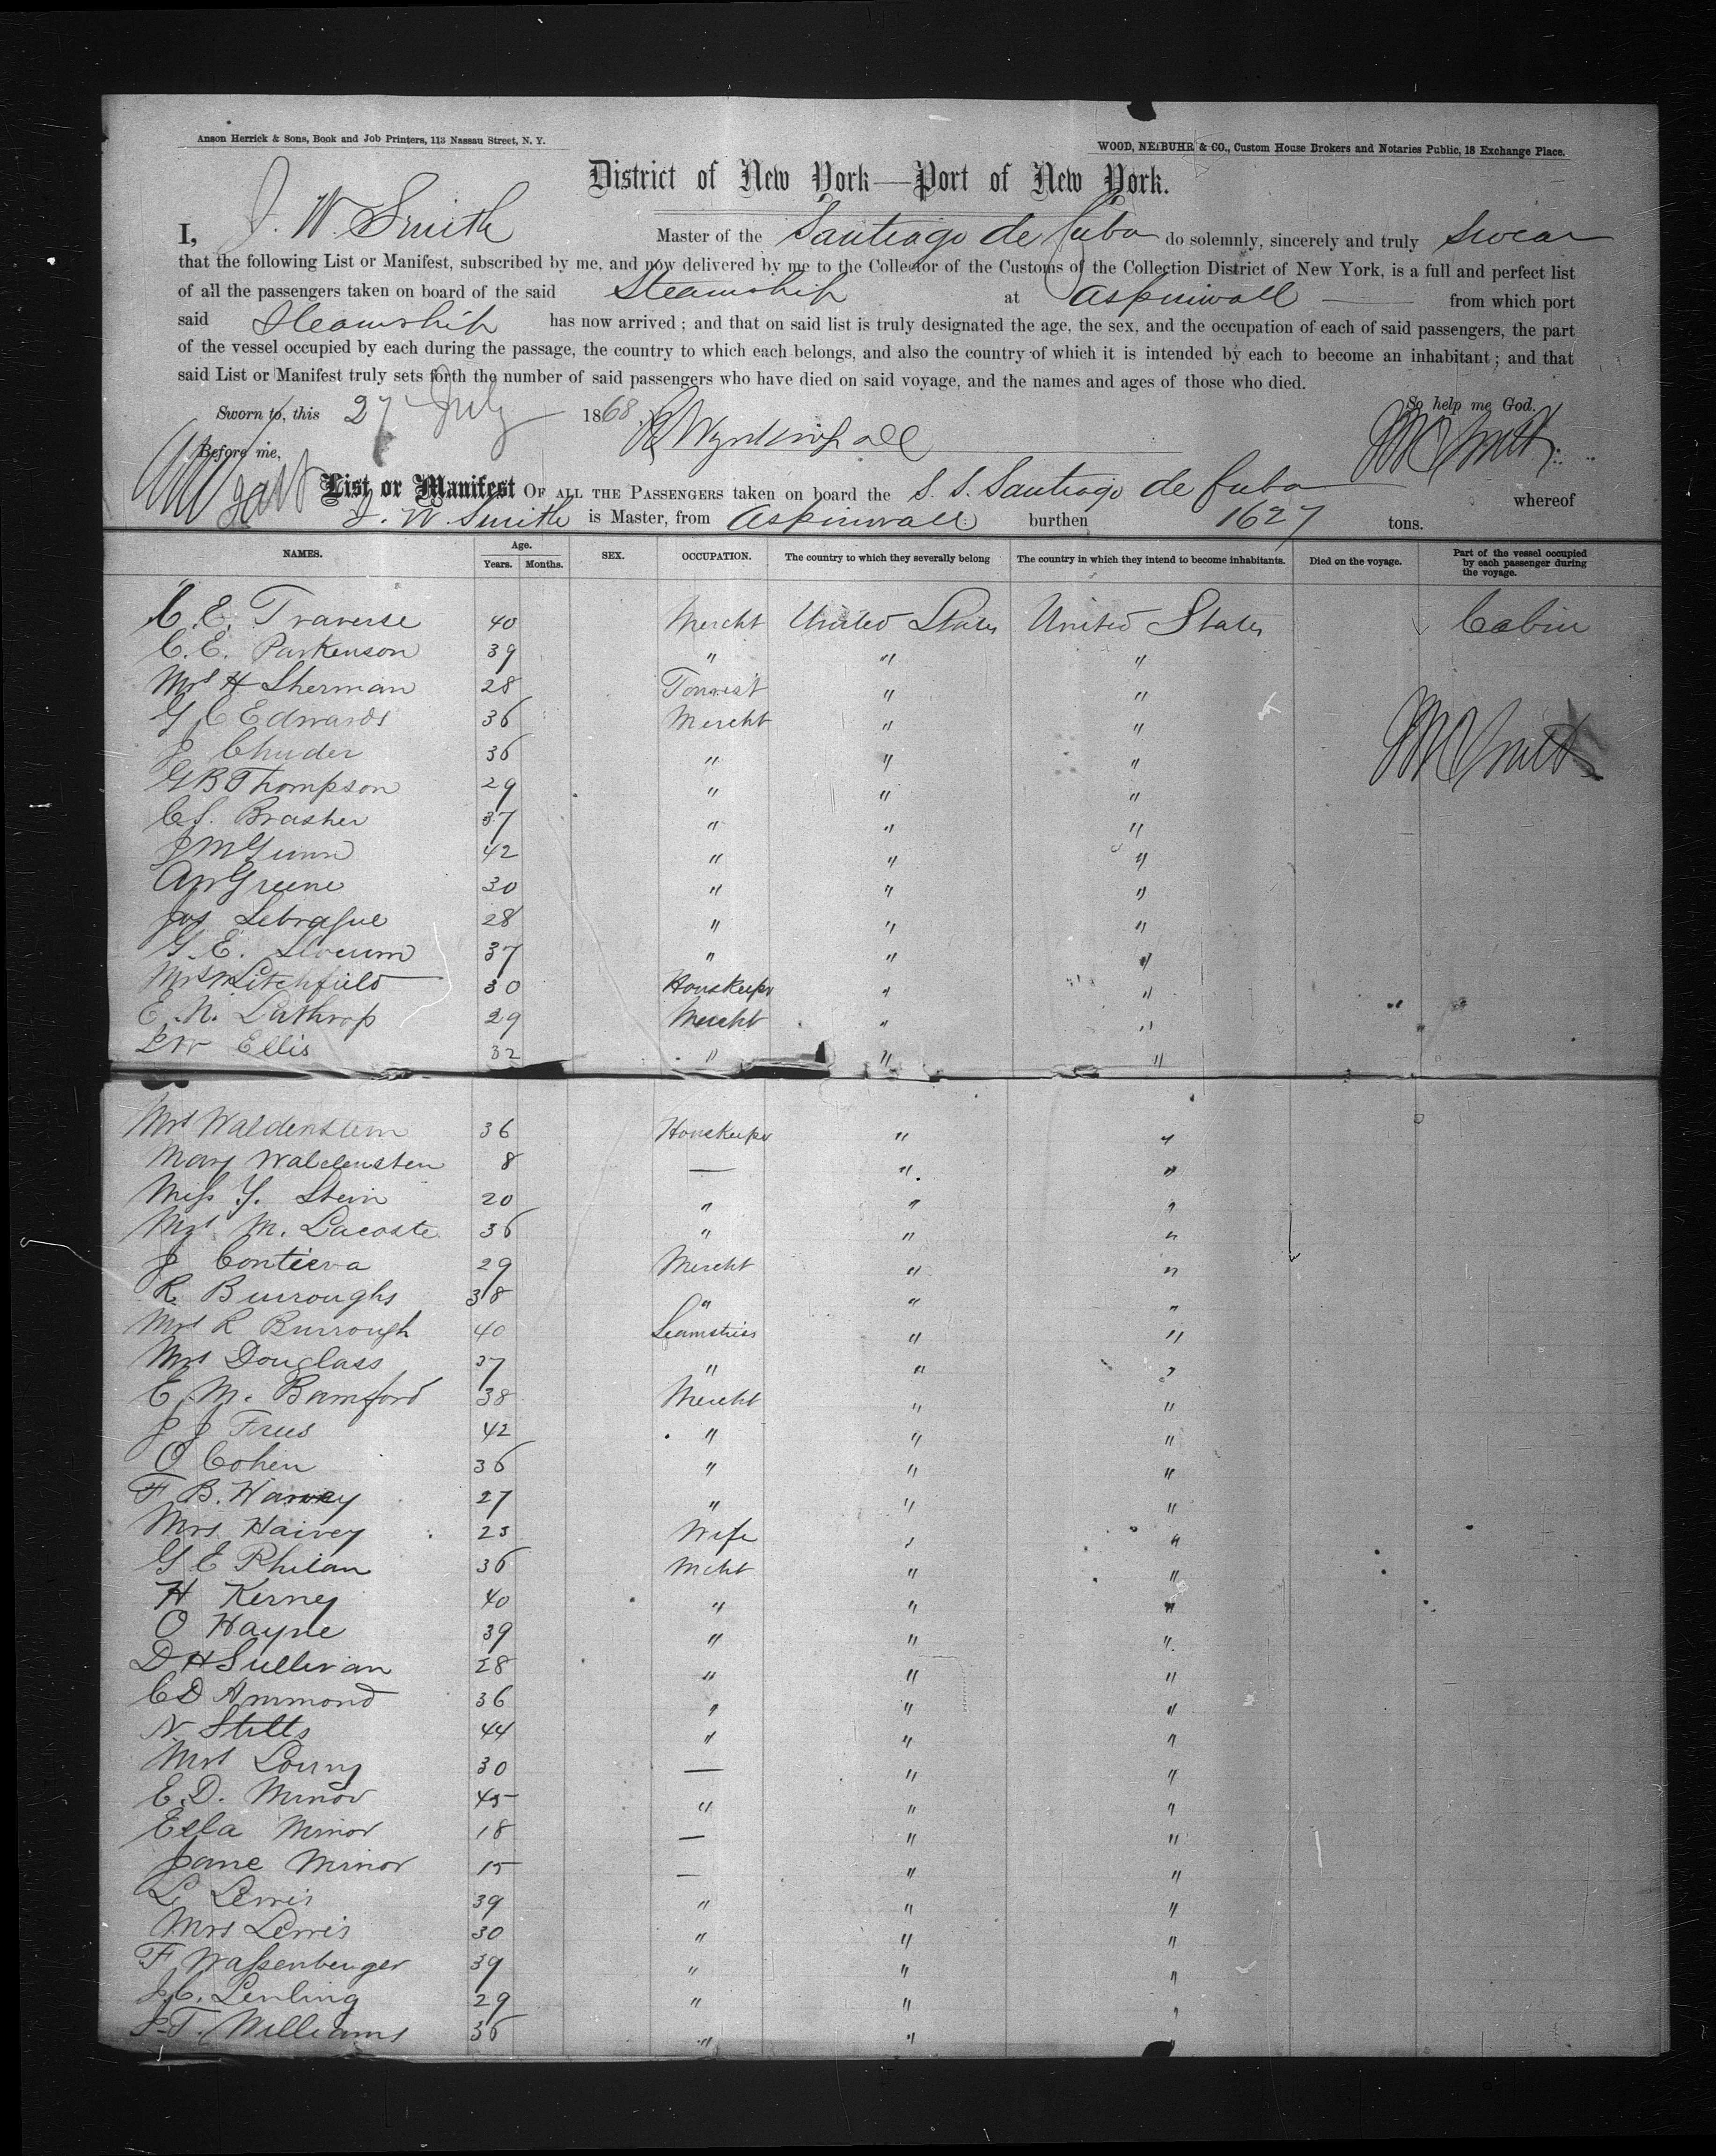 Anson Herrick & Sons, Book and Job Printers, 113 Nassau Street, N. Y.
WOOD, NEIBUHR & CO., Custom House Brokers and Notaries Public, 18 Exchange Place.
District of New York—Port of New York.
I, J. W. Smith Master of the Santiago de Cuba do solemnly, sincerely and truly swear
that the following List or Manifest, subscribed by me, and now delivered by me to the Collector of the Customs of the Collection District of New York, is a full and perfect list
of all the passengers taken on board of the said Steamship at Aspinwall — from which port
said Steamship has now arrived ; and that on said list is truly designated the age, the sex, and the occupation of each of said passengers, the part
of the vessel occupied by each during the passage, the country to which each belongs, and also the country of which it is intended by each to become an inhabitant ; and that
said List or Manifest truly sets forth the number of said passengers who have died on said voyage, and the names and ages of those who died.
So help me God.
Sworn to, this 27 July 1868
Before me,
List or Manifest OF ALL THE PASSENGERS taken on board the S. S. Santiago de Cuba whereof
J. W. Smith is Master, from Aspinwall burthen 1627 tons.
NAMES. Age. Years. Months. SEX. OCCUPATION. The country to which they severally belong The country in which they intend to become inhabitants. Died on the voyage. Part of the vessel occupied by each passenger during the voyage.
C. E. Traverse 40 Mercht United States United States Cabin
C. E. Parkenson 39 " " "
Mrs H Sherman 28 Tourist " "
G C Edwards 36 Mercht " "
J Chuder 36 " " "
G B Thompson 29 " " "
C f. Brasher 37 " " "
J M Gunn 42 " " "
A W Greene 30 " " "
Jas 28 " " "
G. E. Slocum 37 " " "
Mrs Litchfield 30 Houskeepr " "
E. N. Lathrop 29 Mercht " "
Ellis 32 " " "
Mrs Waldenstein 36 Houskeeper " "
Mary Waldensten 8 — " "
Miss Y. Stein 20 " " "
Mrs M. Lacoste 36 " " "
J Contieva 29 Mercht " "
R. Burroughs 38 " " "
Mrs R Burrough 40 Seamstriss " "
Mrs Douglass 37 " " "
E. M. Bamford 38 Mercht " "
J J 42 " " "
O Cohen 36 " " "
F B. Harvey 27 " " "
Mrs Harvey 23 Wife " "
G E Philan 36 Mcht " "
H Kerney 40 " " "
O Hayne 39 " " "
D H Sullivan 28 " " "
C D Ammond 36 " " "
N. Stilts 44 " " "
Mrs Loring 30 — " "
E. D. Minor 45 " " "
Ella Minor 18 — " "
Jane Minor 15 — " "
L Lewis 39 " " "
Mrs Lewis 30 " " "
F Wassenbenger 39 " " "
J. C. Lenling 29 " " "
Williams 36 " " "